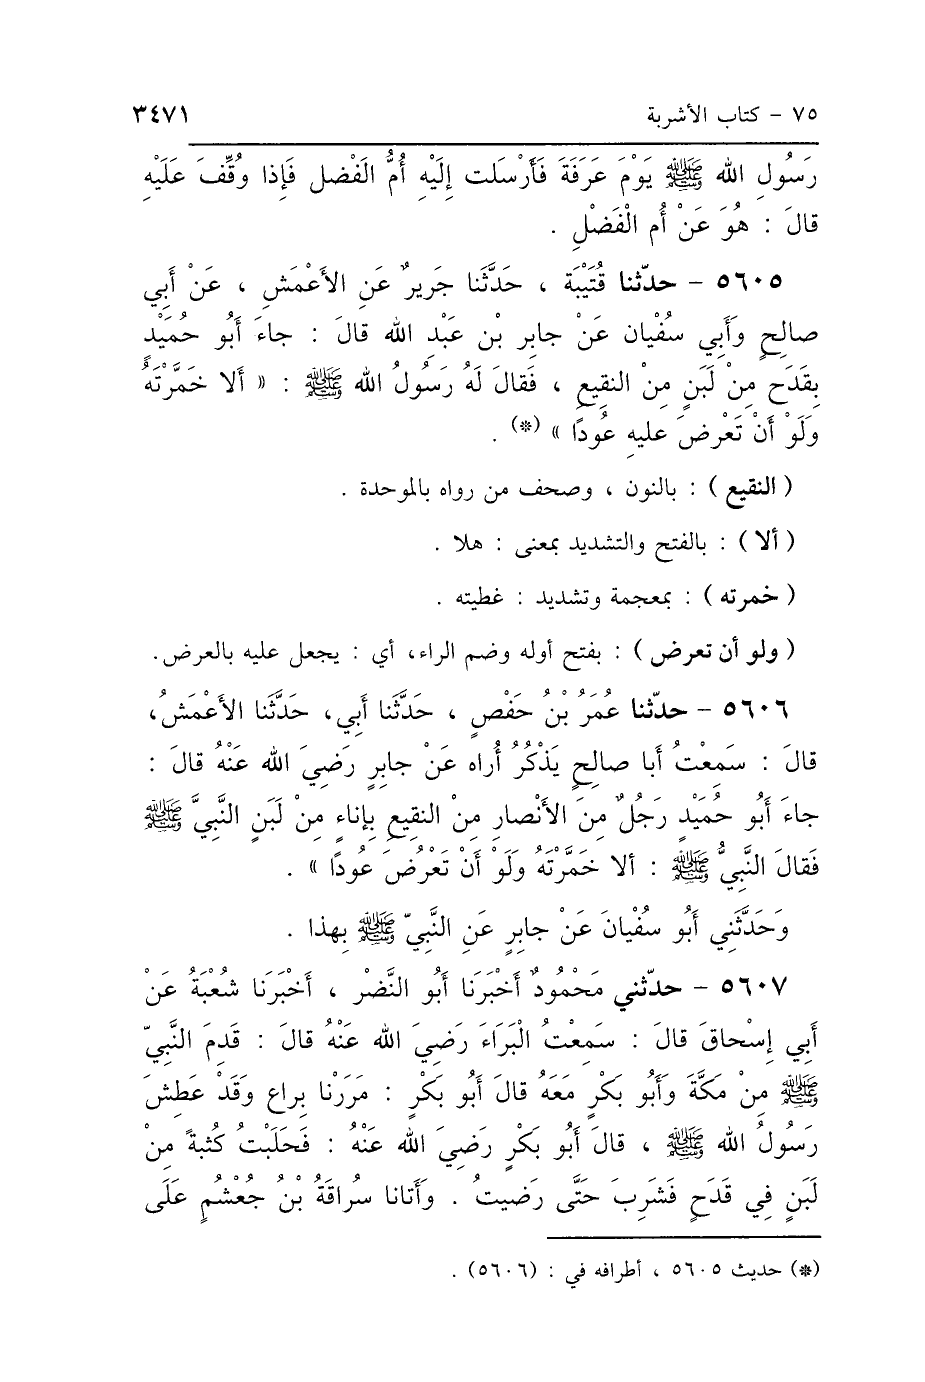 ٧٥ - كتاب الأشربة ٣٤٧١
رَسُولِ الله ﷺ يَوْمَ عَرَفَةَ فَأَرْسَلت إِلَيْهِ أُمُّ الَفْضل فَإذا وُقِّفَ عَلَيْهِ
قالَ : هُوَ عَنْ أُم الْفَضْلِ .
٥٦٠٥ - حدّثنا قُتَيْبَة ، حَدَّثَنا جَريرٌ عَنِ الأَعْمَشِ ، عَنْ أَبي
صالحٍ وَأَبِي سُفْيان عَنْ جابِرِ بْن عَبْدِ الله قالَ : جاءَ أَبُو حُمَيْدٍ
بِقَدَح مِنْ لَبَنٍ مِنْ النقيعِ ، فَقالَ لَهُ رَسُولُ الله ﷺ : « أَلا خَمَّرْتَهُ
وَلَوْ أَنْ تَعْرِضَ عليه عُودًا » (*) .
( النقيع ) : بالنون ، وصحف من رواه بالموحدة .
( ألا ) : بالفتح والتشديد بمعنى : هلا .
( خمرته ) : بمعجمة وتشديد : غطيته .
( ولو أن تعرض ) : بفتح أوله وضم الراء، أي : يجعل عليه بالعرض.
٥٦٠٦ - حدّثنا عُمَرُ بْنُ حَفْصٍ ، حَدَّثَنا أَبي، حَدَّثَنا الأَعْمَشُ،
قالَ : سَمِعْتُ أَبا صالحٍ يَذْكُرُ أُراه عَنْ جابِرٍ رَضيَ الله عَنْهُ قالَ :
جاءَ أَبُو حُمَيْدٍ رَجُلٌ مِنَ الأَنْصارِ مِنْ النقيعِ بِإناءٍ مِنْ لَبَنٍ النَّبيَّ ﷺ
فَقالَ النَّبيُّ ﷺ : ألا خَمَّرْتَهُ وَلَوْ أَنْ تَعْرُضَ عُودًا » .
وَحَدَّثَني أَبُو سُفْيانَ عَنْ جابِرٍ عَنِ النَّبيّ ﷺ بِهذا .
٥٦٠٧ - حدّثني مَحْمُودٌ أَخْبَرَنا أَبُو النَّضْر ، أَخْبَرَنا شُعْبَةُ عَنْ
أَبي إسْحاقَ قالَ : سَمعْتُ الْبَرَاءَ رَضيَ الله عَنْهُ قالَ : قَدِمَ النَّبيّ
ﷺ مِنْ مَكَّةَ وَأَبُو بَكْرٍ مَعَهُ قالَ أَبُو بَكْرٍ : مَرَرْنا بِراع وَقَدْ عَطِشَ
رَسُولُ الله ﷺ ، قالَ أَبُو بَكْرٍ رَضِيَ الله عَنْهُ : فَحَلَبْتُ كُثبةً مِنْ
لَبَنٍ فِي قَدَحٍ فَشَرِبَ حَتَّى رَضيتُ . وَأَتانا سُراقَةُ بْنُ جُعْشُمٍ عَلَى
(*) حديث ٥٦٠٥ ، أطرافه في : (٥٦٠٦) .